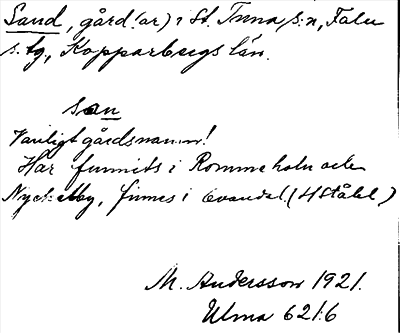 Sand, gård(ar) i St. Tuna s:n, Falu
s. tg, Kopparbergs län.
san
Vanligt gårdsnamn!
Har funnits i Romme holn och
Nyckelby, finnes i (4 Ståbl.)
M. Andersson 1921.
Ulma 621:6